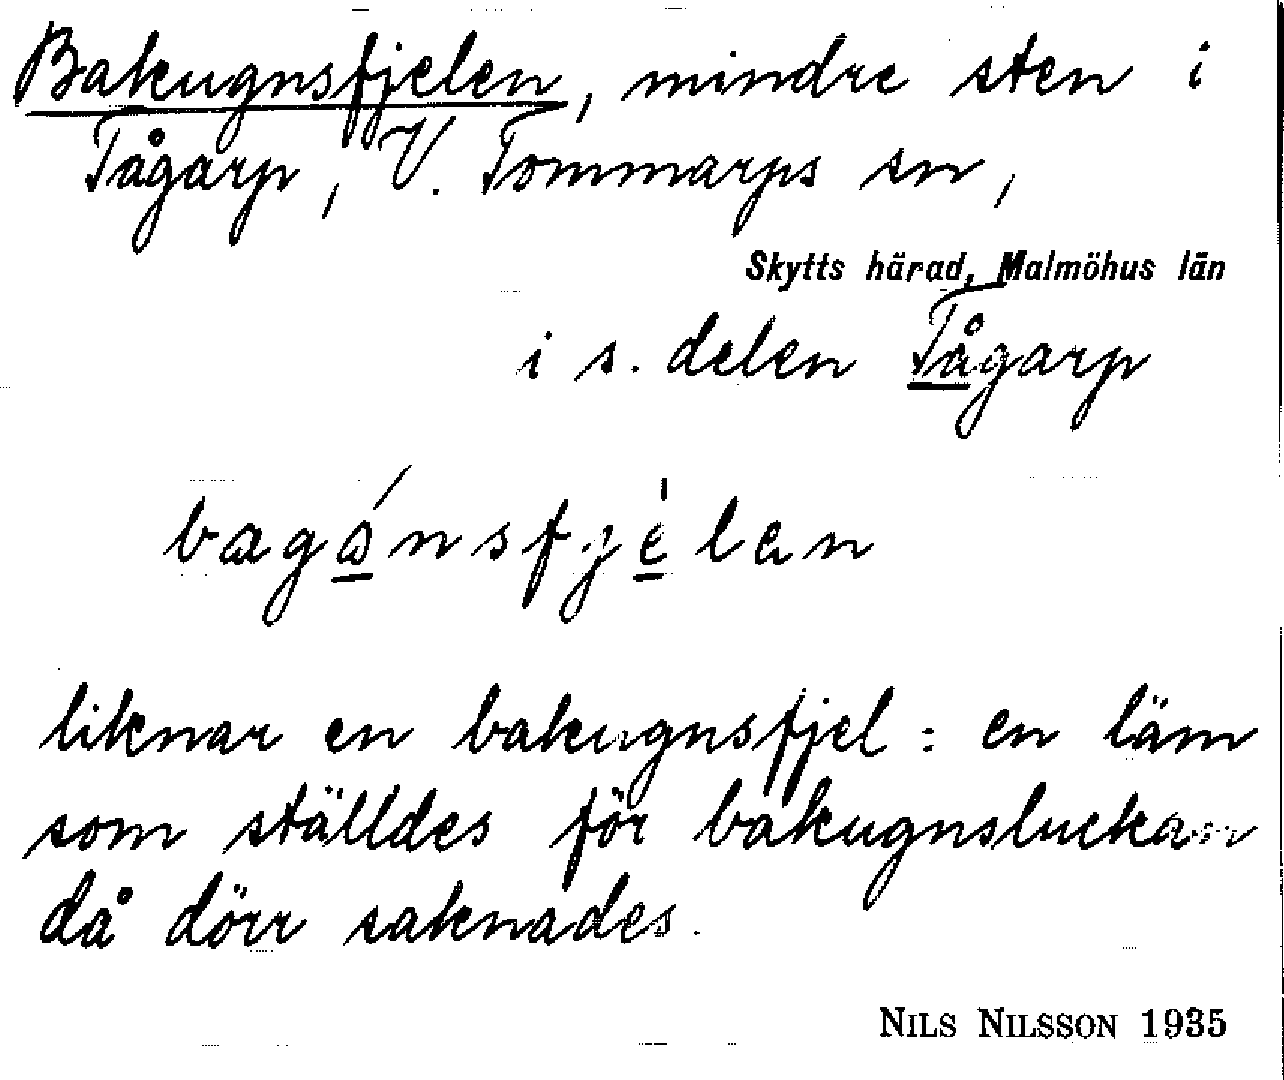 Bakugnsfjelen, mindre sten i
Tågarp, V. Tommarps sn,
Skytts härad, Malmöhus län
i s. delen Tågarp
liknar en bakugnsfjel : en läm
som ställdes för bakugnsluckan
då dörr saknades.
NILS NILSSON 1935